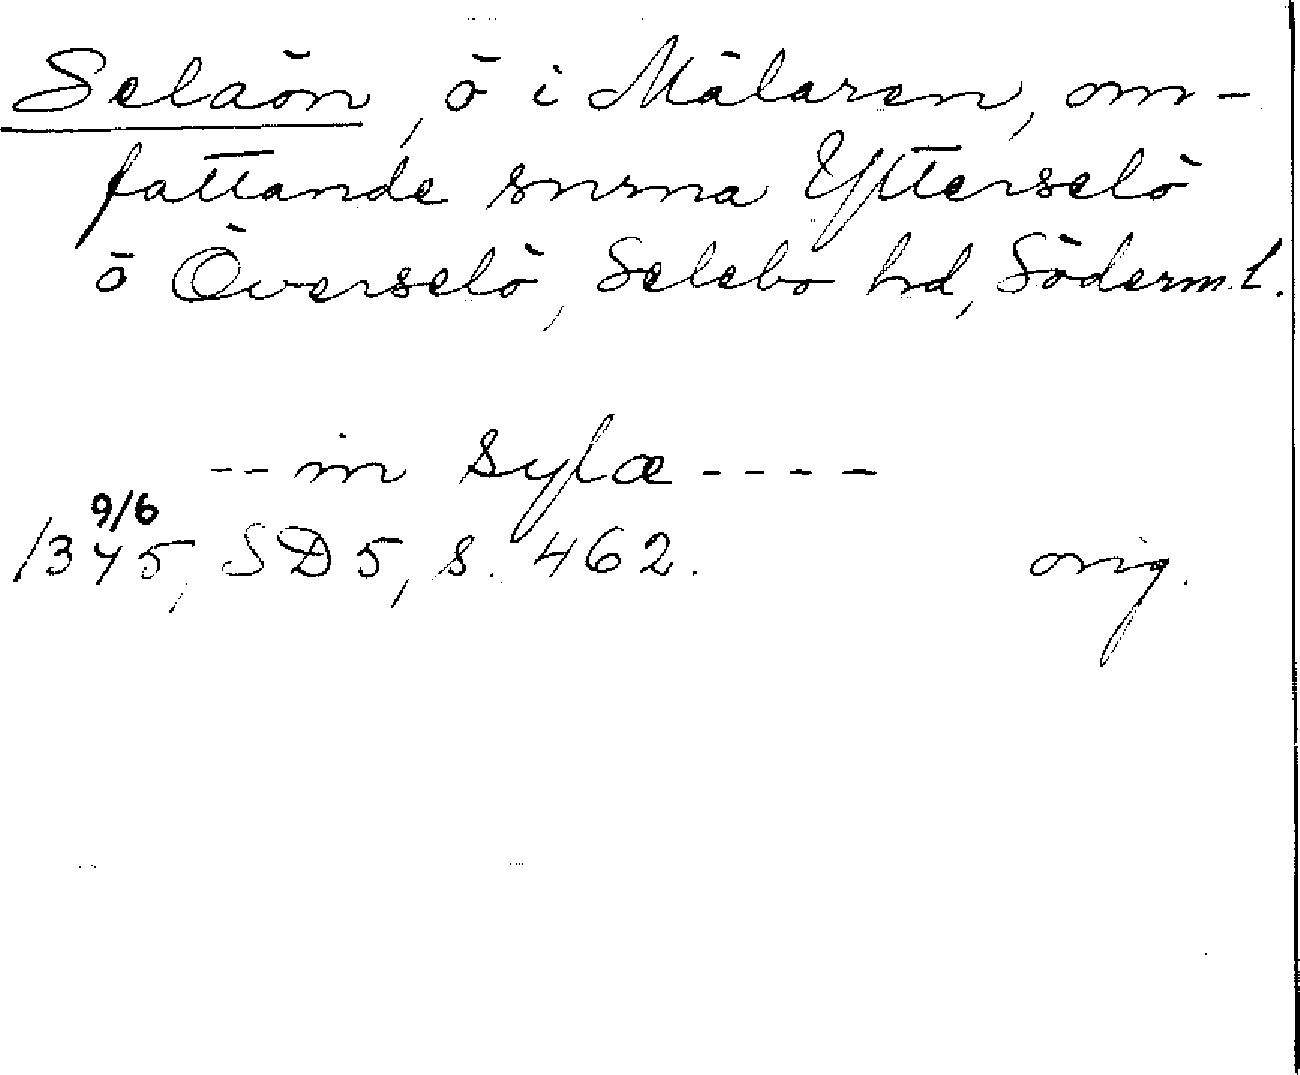 Selaön, ö i Mälaren, om-
fattande snrna Ytterselö
o Överselö, Selebo hd, Söderml.
-- in Sylæ ----
9/6
1345, SD 5, s. 462. orig.